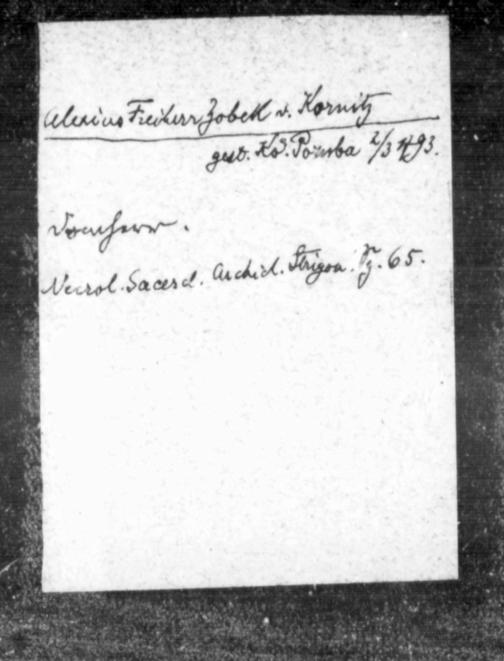 Alexius Freiherr Zobek v. Kornitz
gest. Kő. Poruba 2/3 793.
Domherr.
Necrol. Sacerd. Archid. Strigon. Pg. 65.